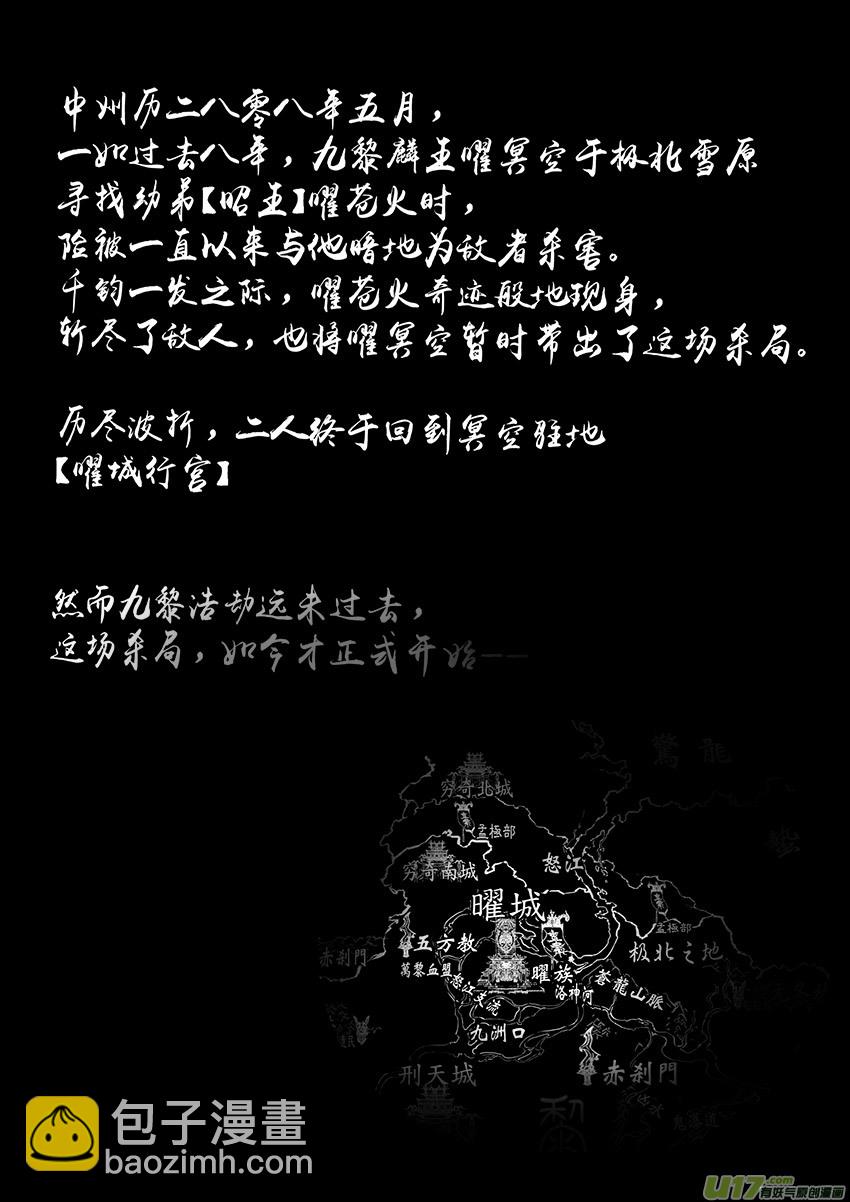 中州历二八零八年五月，
一如过去八年，九黎麟王曜冥空于极北雪原
寻找幼弟【昭王】曜苍火时，
险被一直以来与他暗地为敌者杀害。
千钧一发之际，曜苍火奇迹般地现身，
斩尽了敌人，也将曜冥空暂时带出了这场杀局。
历尽波折，二人终于回到冥空驻地
【曜城行宫】
然而九黎浩劫远未过去，
这场杀局，如今才正式开始——
驚龍
穷奇北城
孟極部
穷奇南城
怒江
曜城
孟極部
五方教
极北之地
赤刹門
萬黎血盟
曜族
蒼龍山脈
怒江支流
洛神河
九洲口
刑天城
赤刹門
黎
鬼瀑道
包子漫畫
baozimh.com
U17.com
有妖气原创漫画